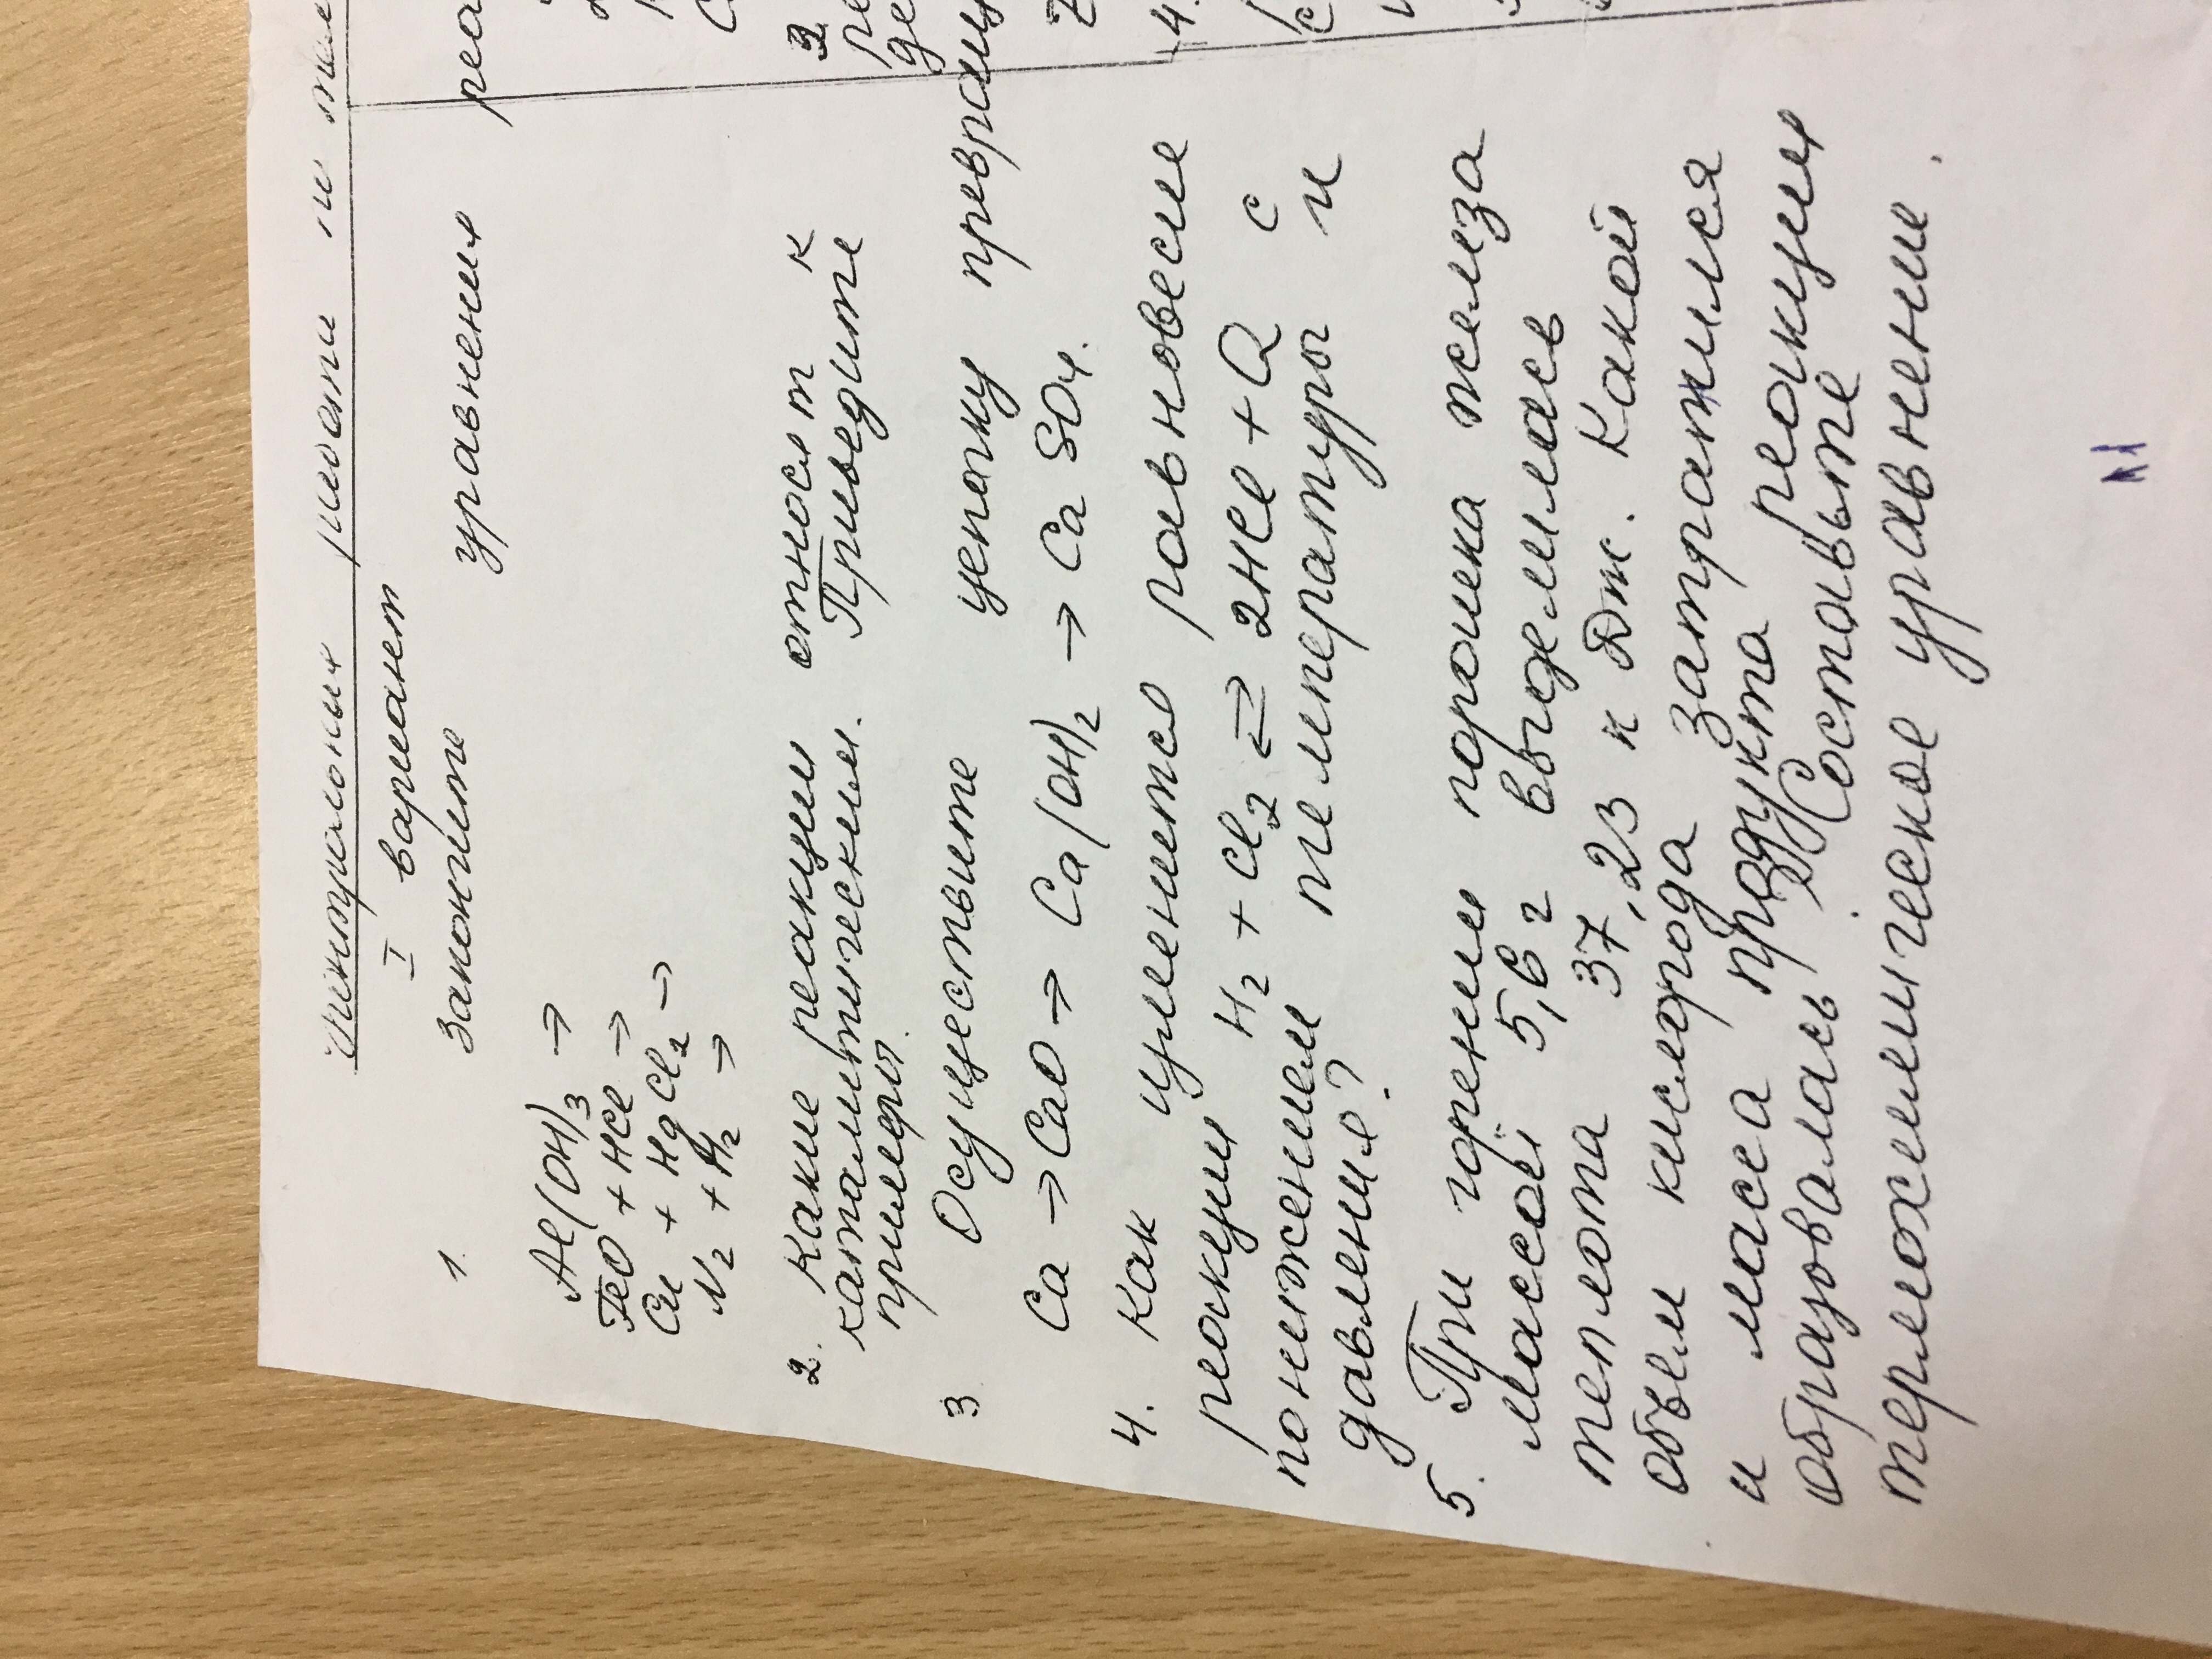 Контрольная работа по теме
I вариант
1. Закончите уравнения реа
Al(OH)3 →
FeO + HCl →
Cu + HgCl2 →
N2 + H2 →
2. Какие реакции относят к
каталитическим. Приведите
примеры.
3 Осуществите цепочку превращ
Ca → CaO → Ca(OH)2 → CaSO4.
4. Как изменится равновесие
реакции H2 + Cl2 ⇄ 2HCl + Q с
понижением температуры и
давления?
5. При горении порошка железа
массой 5,6 г выделилась
теплота 37,23 кДж. Какой
объем кислорода затратился
и масса продукта реакции
образовалась. Составьте
термохимическое уравнение.
2.
ре
де
4.